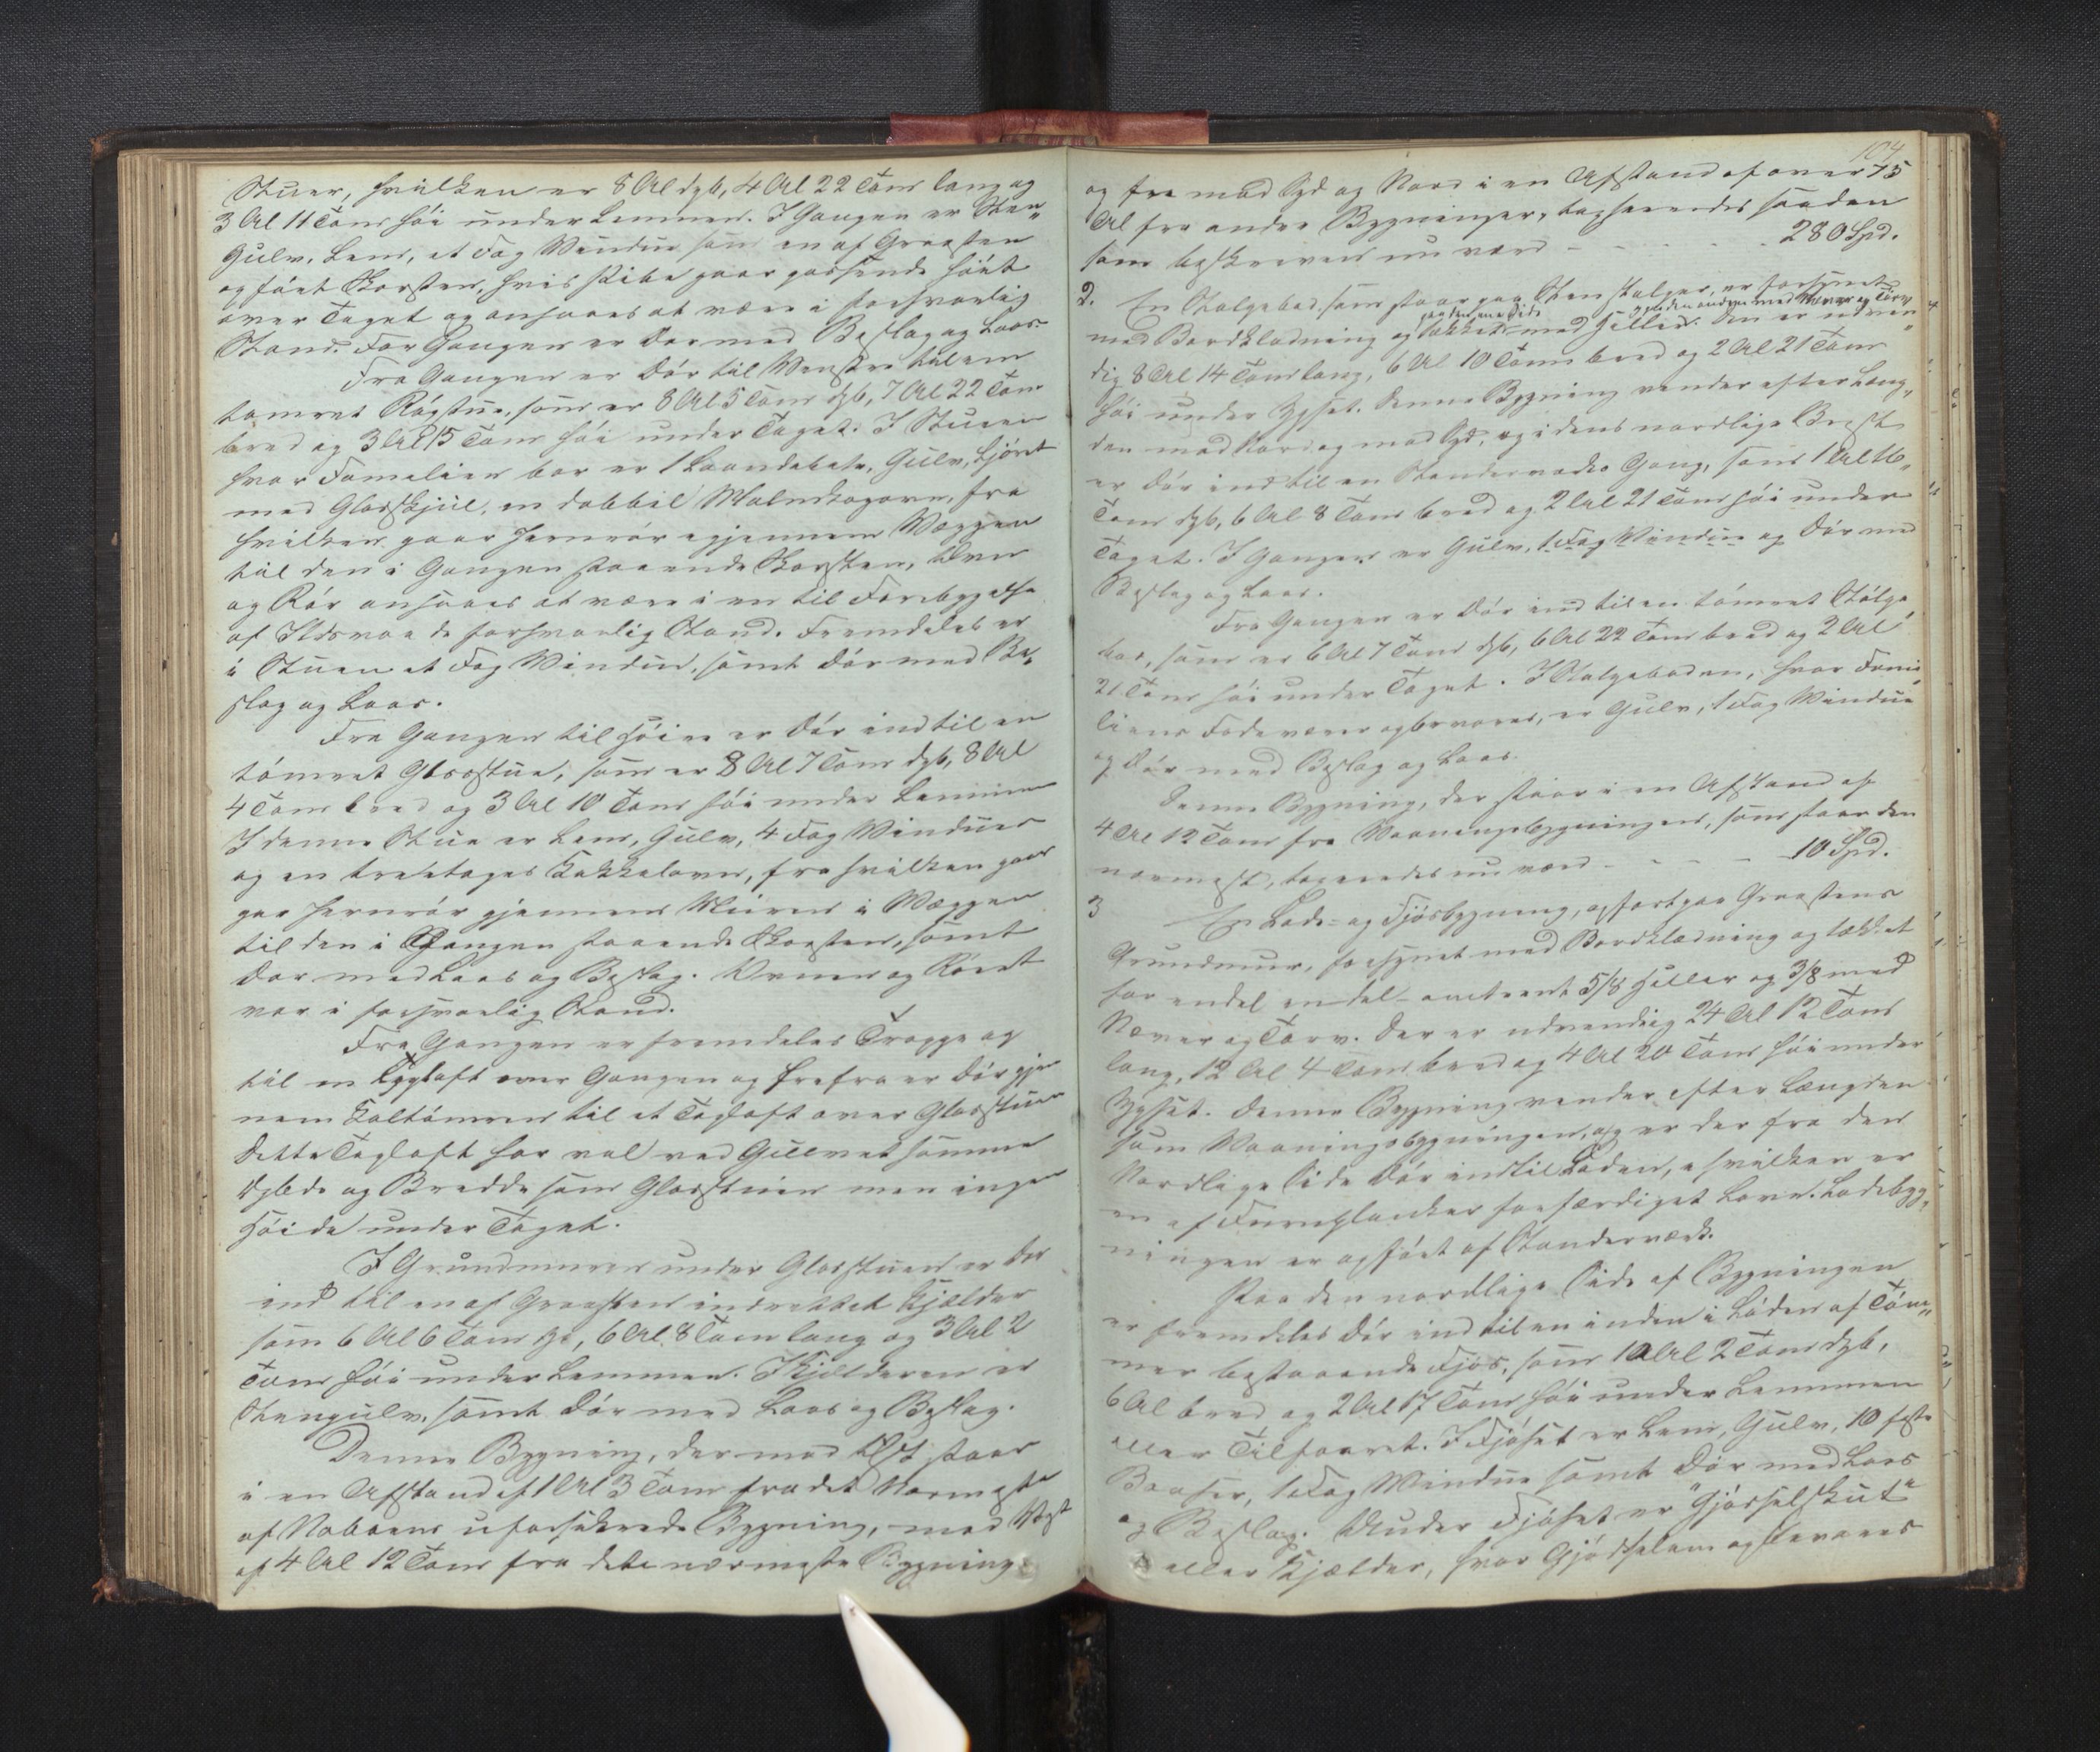 Stuer, hvilken er 8 Al dyb, 4 Al 22 Tom lang og
3 Al 11 Tom høi under Lemmen. I Gangen er Sten„
Gulv, Lem, et Fag Vindue samt en af Graasten
opført Skorsten, hvis Pibe gaar passende høit
over Taget og ansaaes at være i forsvarlig
Stand. For Gangen er Dør med Beslag og Laas.
Fra Gangen er Dør til Venstre til en
tømret Røgstue, som er 8 Al 5 Tom dyb, 7 Al 22 Tom
bred og 3 Al 15 Tom høi under Taget. I Stuen
hvor Familien bor er Gulv, Ljore
med Glasskjul, en dobbel Malmkogovn, fra
hvilken gaar Jernrør igjennem Væggen
til den i Gangen staaende Skorsten, Ovn
og Rør ansaaes at være i en til Forebyggelse
af Ildsvaade forsvarlig Stand. Fremdeles er
i Stuen et Fag Vindue, samt Dør med Be„
slag og Laas.
Fra Gangen til høire er Dør ind til en
tømret Glasstue, som er 8 Al 7 Tom dyb, 8 Al
4 Tom bred og 3 Al 10 Tom høi under Lemmen
I denne Stue er Lem, Gulv, 4 Fag Vinduer
og en treetages Kakkelovn, fra hvilken gaar
gaar Jernrør gjennem Muren i Væggen
til den i Gangen staaende Skorsten, samt
Dør med Laas og Beslag. Ovnen og Røret
var i forsvarlig Stand.
Fra Gangen er fremdeles Trappe op
til en Lygloft over Gangen og herfra er Dør gjen
nem til et Tagloft over Glasstuen
Dette Tagloft har vel ved Gulvet samme
Dybde og Bredde som Glasstuen men ingen
Høide under Taget.
I Grundmuren under Glasstuen er Dør
ind til en af Graasten indrettet Kjælder
som 6 Al 6 Tom dyb, 6 Al 8 Tom lang og 3 Al 2
Tom høi under Lemmen. I Kjælderen er
Stengulv, samt Dør med Laas og Beslag.
Denne Bygning, der mod Øst staar
i en Afstand af 1 Al 3 Tom fra det Nærmeste
af Naboens uforsikrede Bygning, mod Vest
af 4 Al 12 Tom fra dette nærmeste Bygning
104
og fra mod Syd og Nord i en Afstand af over 75
Al fra andre Bygninger, saadan
som beskreven nu værd - - - - - 280 Spd.
2. En Stolpebod, som staar paa Sten stolper, er forsynet
paa den ene Side og paa den anden med Næver og Tørv
med Bordklædning og tækket med Heller. Den er udven„
dig 8 Al 14 Tom lang, 6 Al 10 Tom bred og 2 Al 21 Tom
høi under Gysset. Denne Bygning vender efter Læng„
den mod Nord og mod Syd, og i dens nordlige Bryst
er Dør ind til en Standerværks Gang, som 1 Al 16„
Tom dyb, 6 Al 8 Tom bred og 2 Al 21 Tom høi under
Taget. I Gangen er Gulv, 1 Fag Vindue og Dør med
Beslag og Laas.
Fra Gangen er Dør ind til en tømret Stolpe„
bod, som er 6 Al 7 Tom dyb, 6 Al 22 Tom bred og 2 Al
21 Tom høi under Taget. I Stolpeboden, hvor Fami„
liens Fødevarer opbevares, er Gulv, 1 Fag Vindue
og Dør med Beslag og Laas.
Denne Bygning, der staar i en Afstand af
4 Al 12 Tom fra Vaaningsbygningen, som staar den
nærmest, nu værd - - - - 10 Spd.
3 En Lade- og Fjøsbygning, opført paa Graastens
Grundmur, forsynet med Bordklædning og tækket
for endel endel omtrent 5/8 Heller og 3/8 med
Næver og Tørv. Der er udvendig 24 Al 12 Tom
lang, 12 Al 4 Tom bred og 4 Al 20 Tom høi under
Gysset. Denne Bygning vender efter Længden
som Vaaningsbygningen, og er der fra den
Nordlige Side Dør ind til Laden, i hvilken er
en af Fureplanker forfærdiget Lave. Ladebyg„
ningen er opført af Standerværk.
Paa den nordlige Side af Bygningen
er fremdeles Dør ind til en inden i Laden af Tøm„
mer bestaaende Fjøs, som 10 Al 2 Tom dyb,
6 Al bred og 2 Al 17 Tom høi under Lemmen
eller Tilfaaret. I Fjøset er Lem, Gulv, 10 faste
Baaser, 1 Fag Vindue samt Dør med Laas
og Beslag. Under Fjøset er "Gjødselskut"
eller Kjælder, hvor Gjødselen opbevares